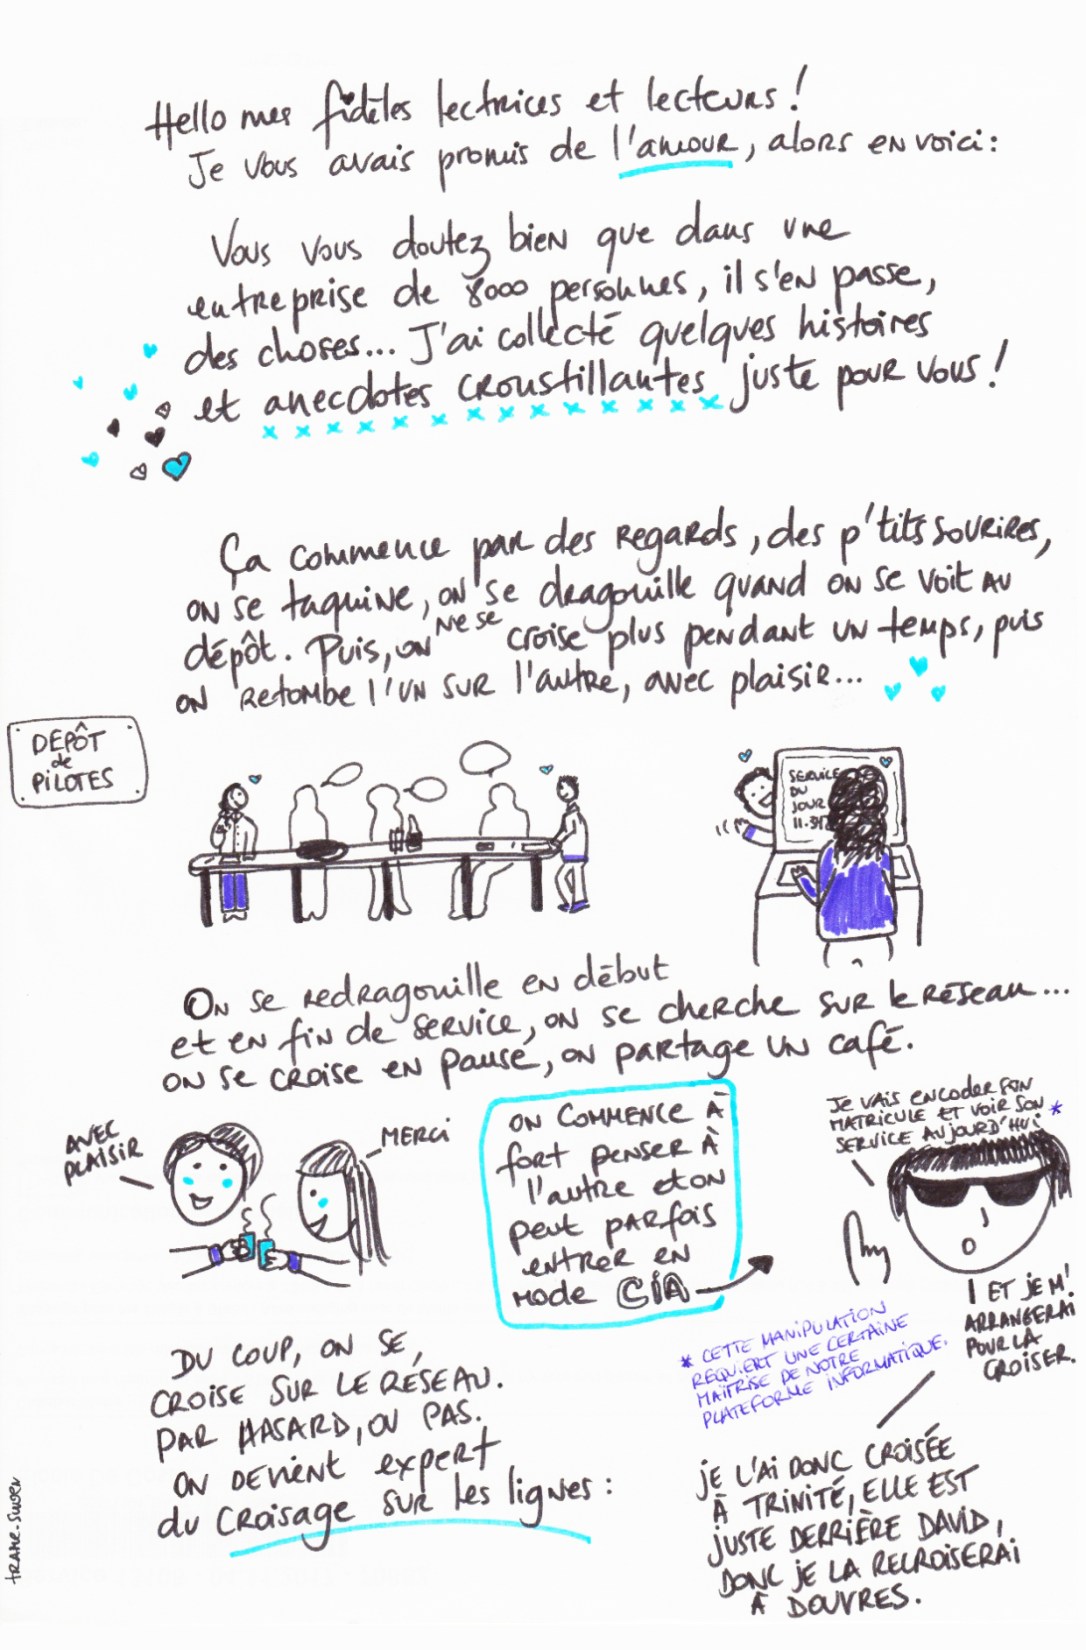 Hello mes fidèles lectrices et lecteurs !
Je vous avais promis de l'amour, alors en voici :
Vous vous doutez bien que dans une
entreprise de 8000 personnes, il s'en passe,
des choses... J'ai collecté quelques histoires
et anecdotes croustillantes juste pour vous !
Ça commence par des regards, des p'tits sourires,
on se taquine, on se dragouille quand on se voit au
dépôt. Puis, on ne se croise plus pendant un temps, puis
on retombe l'un sur l'autre, avec plaisir...
DÉPÔT
de
PILOTES
SERVICE
DU
JOUR
On se redragouille en début
et en fin de service, on se cherche sur le réseau...
on se croise en pause, on partage un café.
AVEC
PLAISIR
MERCI
ON COMMENCE À
fort penser à
l'autre et on
peut parfois
entrer en
mode CIA
Je vais encoder son
matricule et voir son
service aujourd'hui *
ET JE M'
ARRANGERAI
POUR LA
CROISER.
* CETTE MANIPULATION
REQUIERT UNE CERTAINE
MAÎTRISE DE NOTRE
PLATEFORME INFORMATIQUE.
DU COUP, ON SE
CROISE SUR LE RÉSEAU.
PAR HASARD, OU PAS.
ON DEVIENT expert
du croisage sur les lignes :
JE L'AI DONC CROISÉE
À TRINITÉ, ELLE EST
JUSTE DERRIÈRE DAVID,
DONC JE LA RECROISERAI
À DOUVRES.